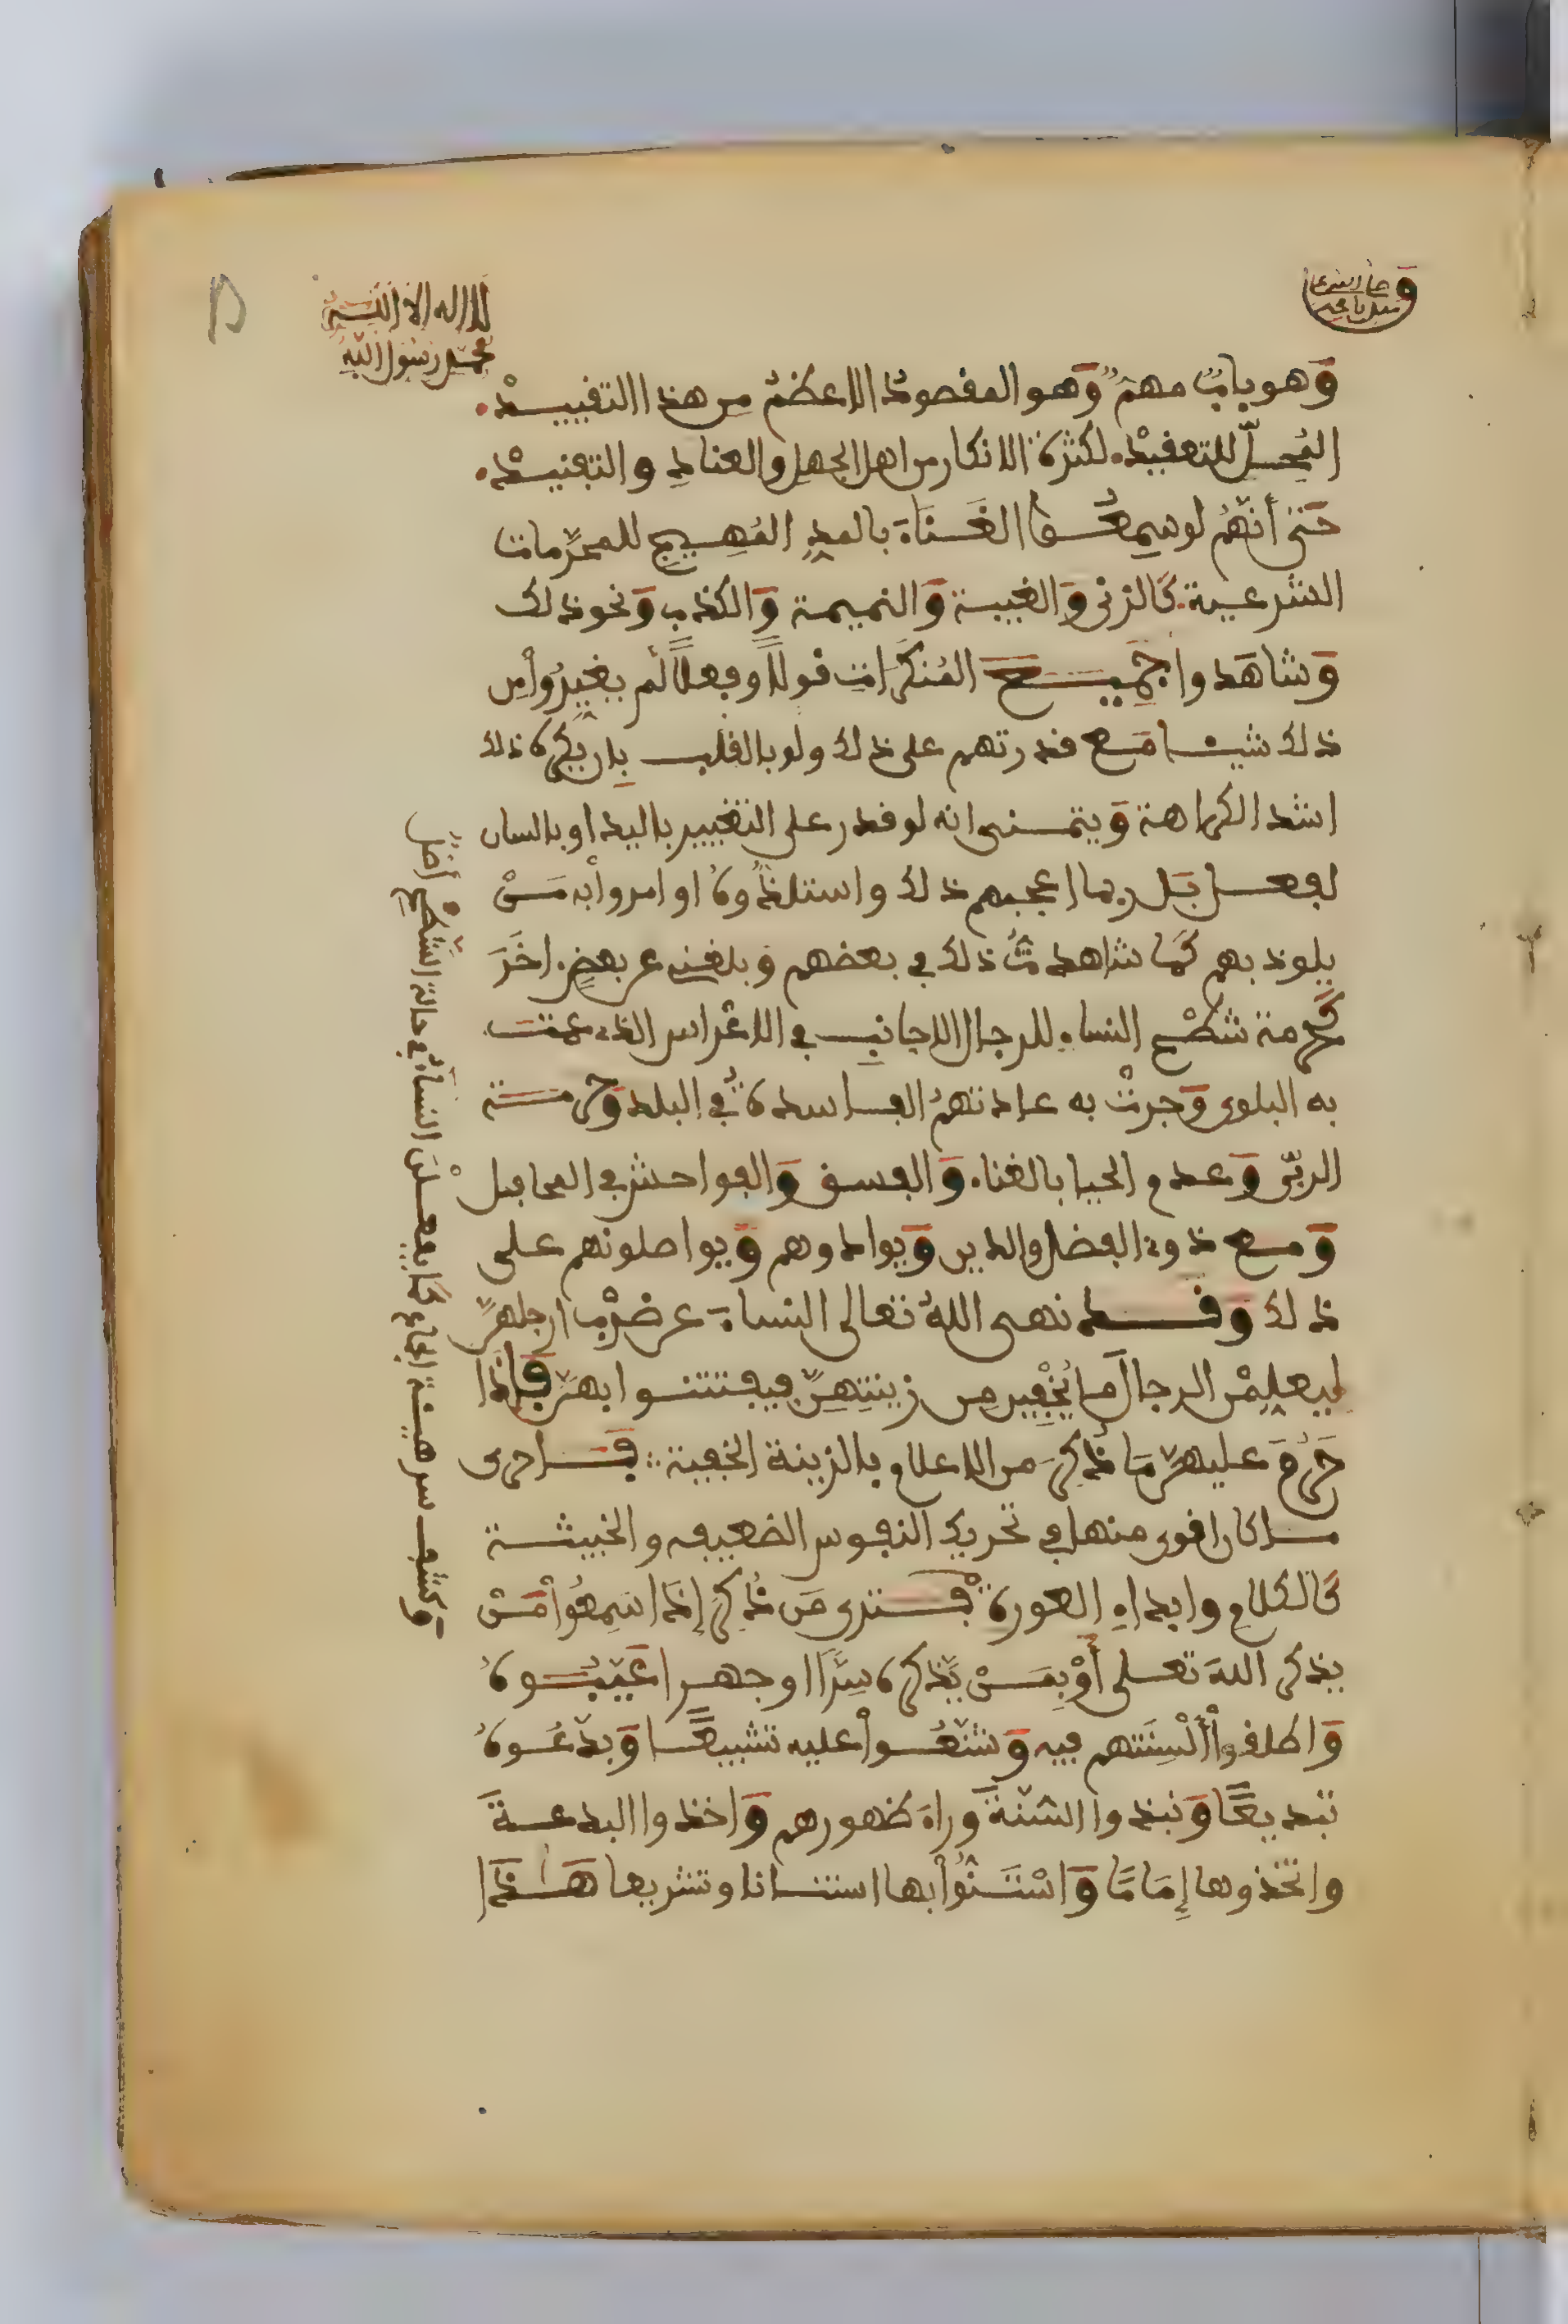 لا اله الا الله
محمد رسول الله
وَهو بابٌ مهمٌّ وَهو المقصودُ الاعظمُ من هذا التقييــدْ.
المُحِــلّ للتعقيدْ. لكثرة الانكار من اهل الجهل والعناد والتفنيــدْ.
حَتى أنّهُم لو سمِعُــوا الغَــنَاءَ بالمدِ المُهِــيجِ للمحرّمات
الشرعــية. كَالزنى وَالغيبــة وَالنميمــة وَالكذب وَنحو ذلك
وَشاهَدوا جَمِيــعَ المُنكَرات قولًا وفعلًا لم يغيرُوا من
ذلك شيــئا مَــع قدرتهم على ذلك ولو بالقلب بِان يكره ذلك
اشد الكراهة وَيتمــنى انه لو قدر على التغيير باليد او بالسان
لفعــل بَــل ربما اعجبهم ذلك واستلذُّوهُ او امروا به مَــنْ
يلوذ بهم كَما شاهدتُّ ذلك في بعضهم وَبلغني عن بعضٍ. اخَرَ
كَحرمة شطْحِ النساء للرجال الاجانِبِ في الاعْراس الذي عمّتــ
به البلوى وَجرتْ به عادتهمُ الفــاسدةُ في البلد وَحرمــة
الربى وَعدم الحيا بالغناء. وَالفسق وَالفواحش في المحافل
وَمــع ذوي الفضل والدين وَيوادوهم وَيواصلونهم علــى
ذلك وَقــد نهــى اللهُ تعالى النساءَ عن ضرْبِ ارجلهنّ
ليعلِمْن الرجالَ ما يُخْفِين من زينتِهِنّ فيفتتنــوا بهنّ فَإِذَا
حَرُمَ عليهنّ مَا ذُكِرَ من الاعلام بالزينة الخفية فَــاحرى
مــا كان اقوى منها في تحريك النفوس الضعيفه والخبيثــة
كَالكلام وابداءِ العورةِ فَــترى مَن ذُكِرَ إِذَا سَمِعُوا مَــنْ
يذكر اللهَ تعــلى أوْ بِمَــنْ يَّذكره سِرًّا او جهــرا عَيّبُــوهُ
وَاطلقوا أَلْسِنَتهم فيه وَشنّعُــوا عليه تشنيعًــا وَبدّعُــوهُ
تبديعًا وَنبذوا السّنةَ وراءَ ظهورهم وَاخذوا البدعــةَ
واتّخذوها إِمَامًا وَاسْتَــنُّوا بها استنــانا وتشريعا هَــذَا
وَكشفــ سر هيــئة الجماع كَما يفعــلْنَ النساءُ في حالة الشّطْحِ. أصلً